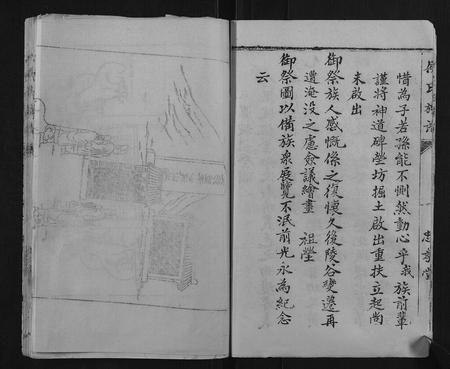 惜為子若孫能不惻然動心乎我族前輩
謹將神道碑塋坊掘土啟出重扶立起尚
未啟出
御祭族人感慨係之復懷久後陵谷變遷再
遭淹没之慮僉議繪畫 祖塋
御祭圖以備族衆展覽不泯前光永為紀念
云
氏族譜
忠孝堂